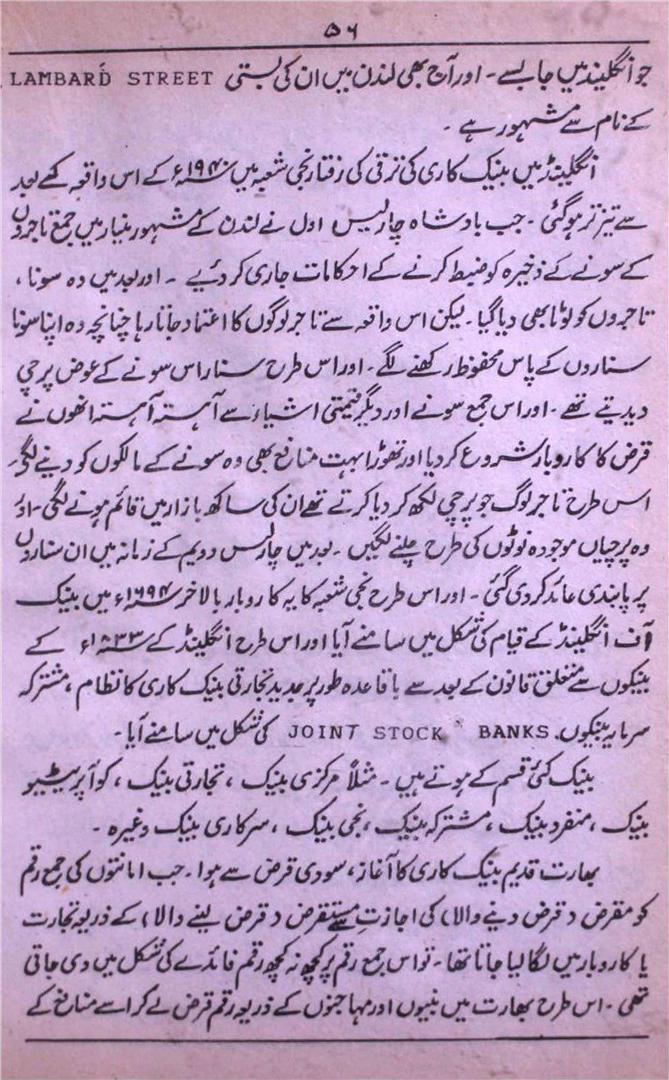 ۵۶
جو انگلینڈ میں جا بسے ۔ اور آج بھی لندن میں ان کی بستی LAMBARD STREET
کے نام سے مشہور ہے ۔
انگلینڈ میں بینک کاری کی ترقی کی رفتار نجی شعبہ میں ۱۹۴۰ء کے اس واقعہ کے بعد
سے تیز تر ہو گئی ۔ جب بادشاہ چارلیس اول نے لندن کے مشہور مینار میں جمع تاجروں
کے سونے کے ذخیرہ کو ضبط کرنے کے احکامات جاری کر دئیے ۔ اور بعد میں وہ سونا ،
تاجروں کو لوٹا بھی دیا گیا ۔ لیکن اس واقعہ سے تاجر لوگوں کا اعتماد جاتا رہا چنانچہ وہ اپنا سونا
سناروں کے پاس محفوظ رکھنے لگے ۔ اور اس طرح سنار اس سونے کے عوض پرچی
دیدیتے تھے ۔ اور اس جمع سونے اور دیگر قیمتی اشیاء سے آہستہ آہستہ انھوں نے
قرض کا کاروبار شروع کر دیا اور تھوڑا بہت منافع بھی وہ سونے کے مالکوں کو دینے لگے ۔
اس طرح تاجر لوگ جو پرچی لکھ کر دیا کرتے تھے ان کی ساکھ بازار میں قائم ہونے لگی ۔ اور
وہ پرچیاں موجودہ نوٹوں کی طرح چلنے لگیں ۔ بعد میں چارلس دویم کے زمانہ میں ان سناروں
پر پابندی عائد کر دی گئی ۔ اور اس طرح نجی شعبہ کا یہ کاروبار بالاخر ۱۶۹۴ء میں بینک
آف انگلینڈ کے قیام کی شکل میں سامنے آیا اور اس طرح انگلینڈ کے ۱۸۳۳ء کے
بینکوں سے متعلق قانون کے بعد سے باقاعدہ طور پر جدید تجارتی بینک کاری کا نظام ، مشترکہ
سرمایہ بینکوں JOINT STOCK BANKS. کی شکل میں سامنے آیا ۔
بینک کئی قسم کے ہوتے ہیں ۔ مثلاً مرکزی بینک ، تجارتی بینک ، کوآپریٹیو
بینک ، منفرد بینک ، مشترکہ بینک ، نجی بینک ، سرکاری بینک وغیرہ ۔
بھارت قدیم بینک کاری کا آغاز ، سودی قرض سے ہوا ۔ جب امانتوں کی جمع رقم
کو مقرض ( قرض دینے والا ) کی اجازت سے مستقرض ( قرض لینے والا ) کے ذریعہ تجارت
یا کاروبار میں لگا لیا جاتا تھا ۔ تو اس جمع رقم پر کچھ نہ کچھ رقم فائدے کی شکل میں دی جاتی
تھی ۔ اس طرح بھارت میں بنیوں اور مہاجنوں کے ذریعہ رقم قرض لے کر اسے منافع کے